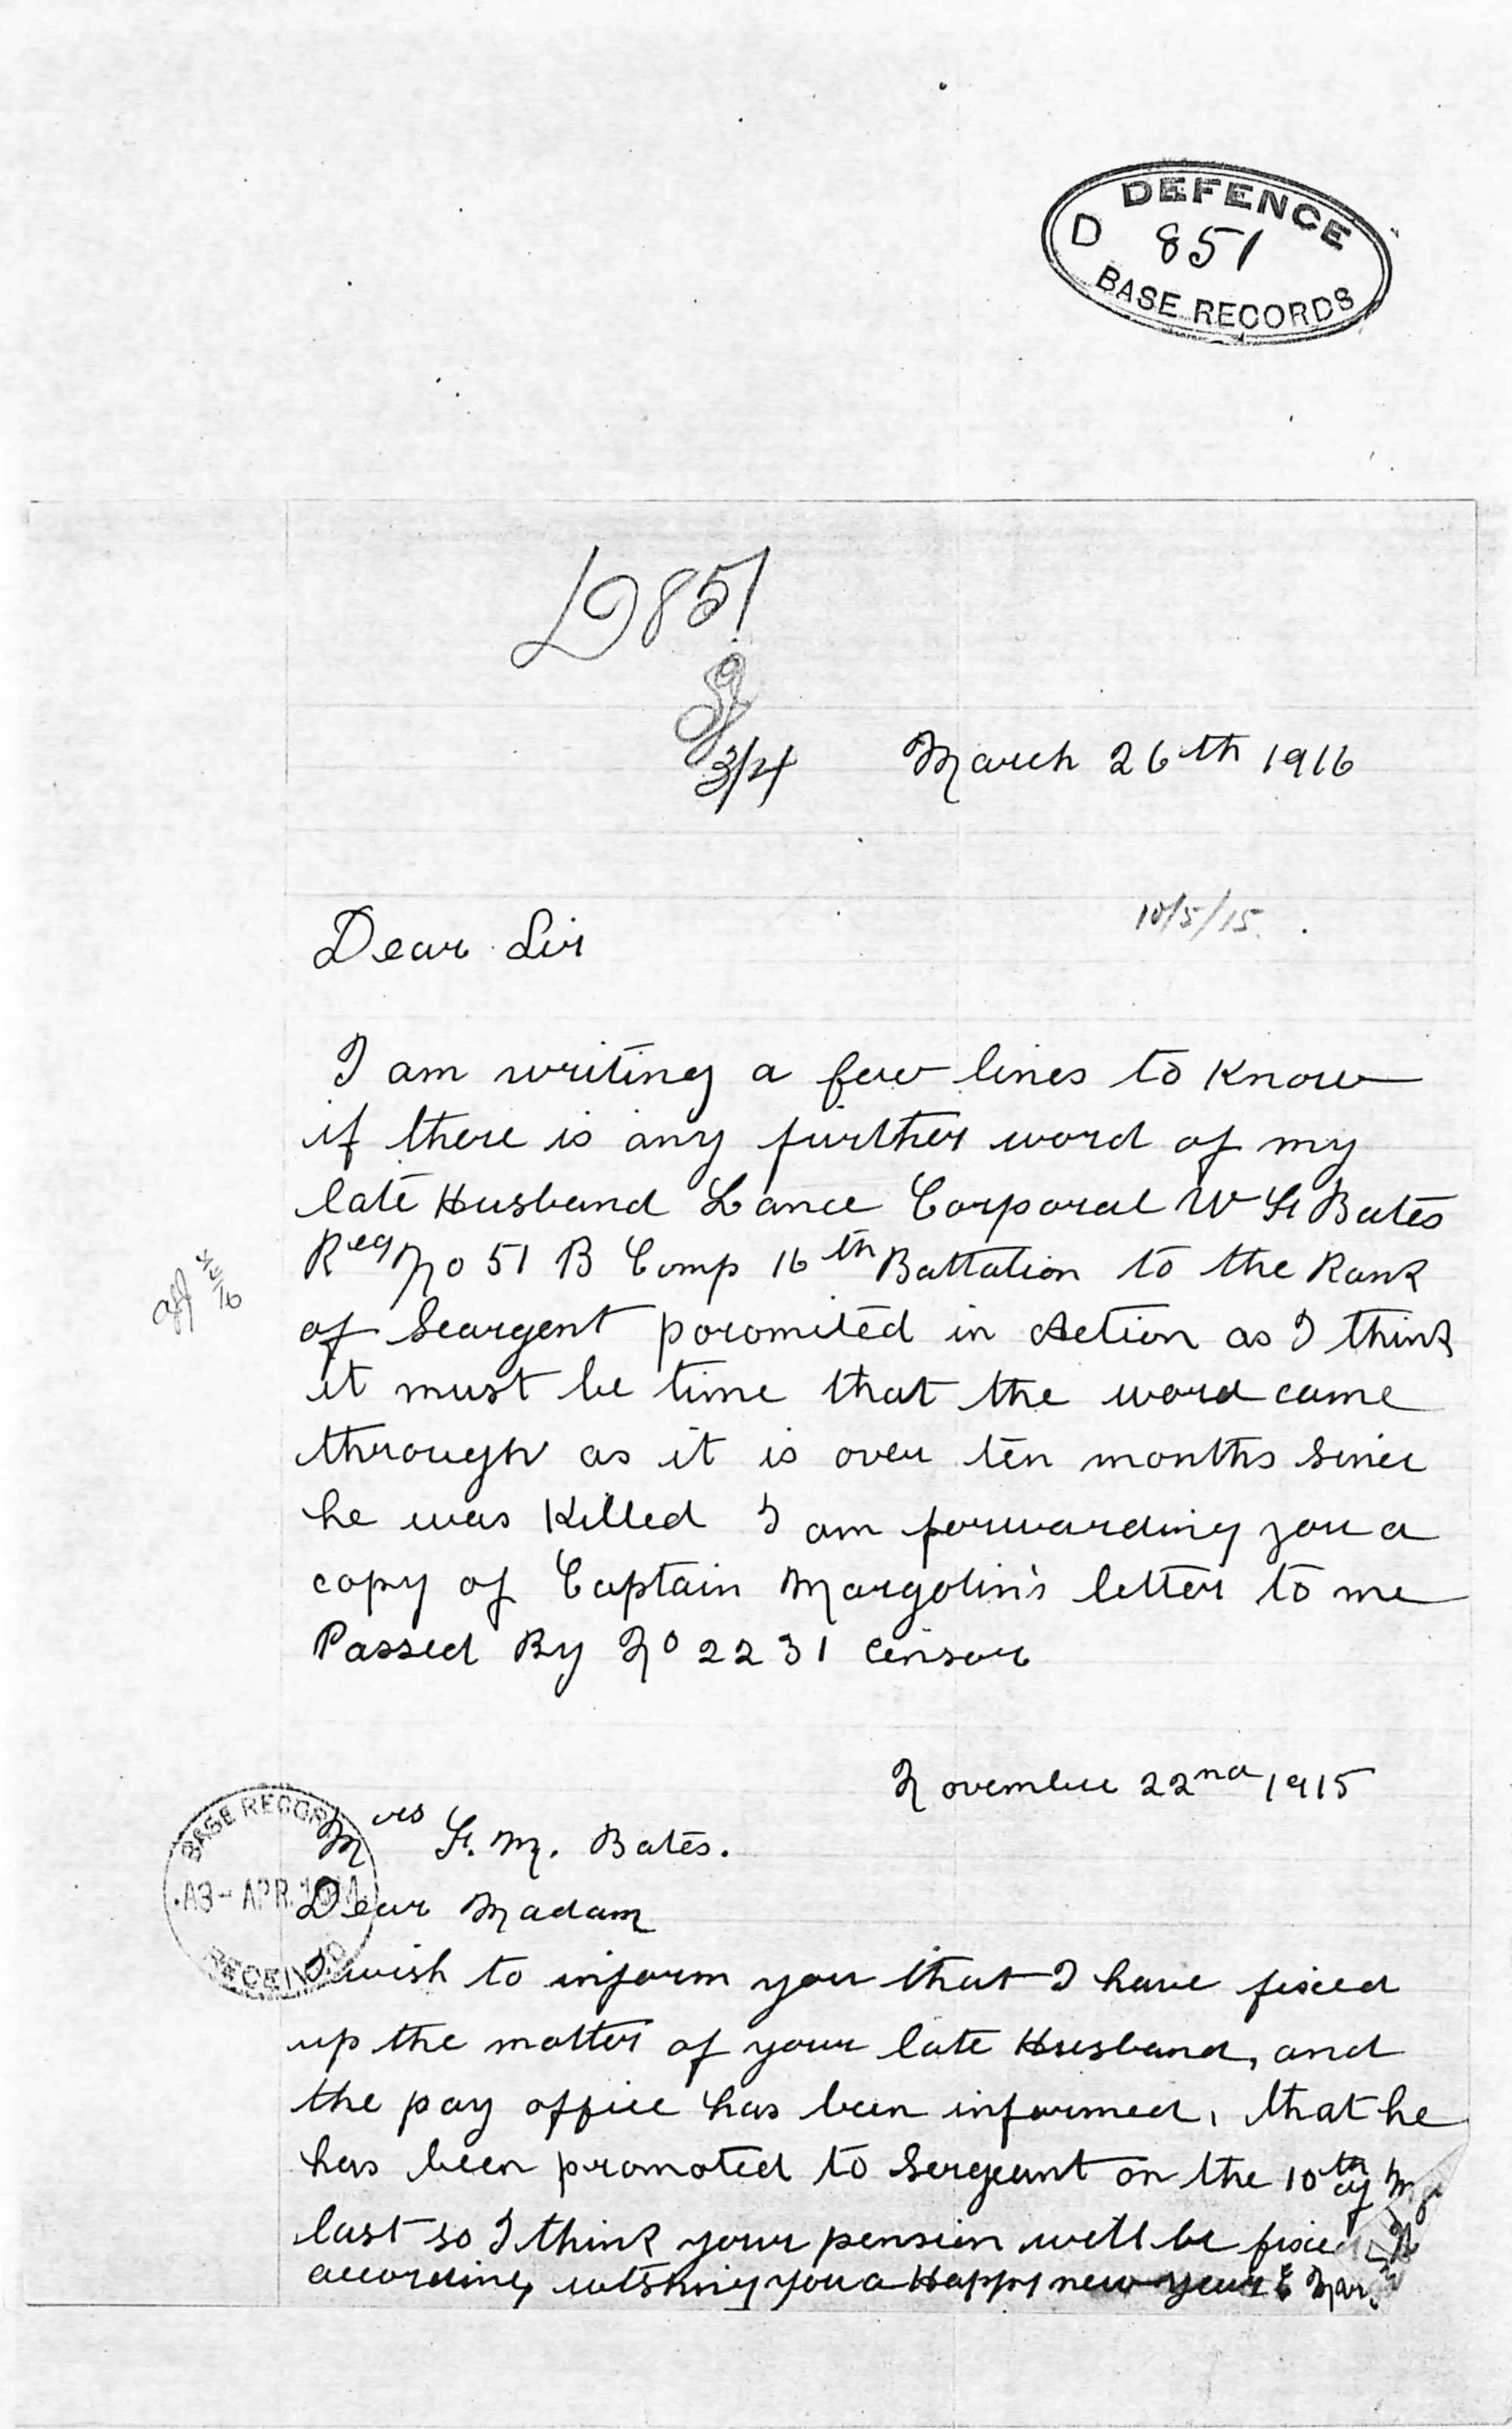 DEFENCE
D 851
BASE RECORDS
D851
3/4
March 26th 1916
10/5/15.
Dear Sir
I am writing a few lines to Know
if there is any further word of my
late Husband Lance Corporal W G Bates
Reg No 51 B Comp 16th Battalion to the Rank
of Seargent poromited in Action as I think
it must be time that the word came
through as it is over ten months since
he was Killed I am forwarding you a
copy of Captain Margolin's letter to me
Passed By No 2231 Censor
November 22nd 1915
BASE RECOR
Mrs G. M. Bates.
Dear Madam
RECEIVED
I wish to inform you that I have fixed
up the matter of your late Husband, and
the pay office has been informed, that he
has been promoted to Sergeant on the 10th of
last so I think your pension will be
according wishing you a Happy new year